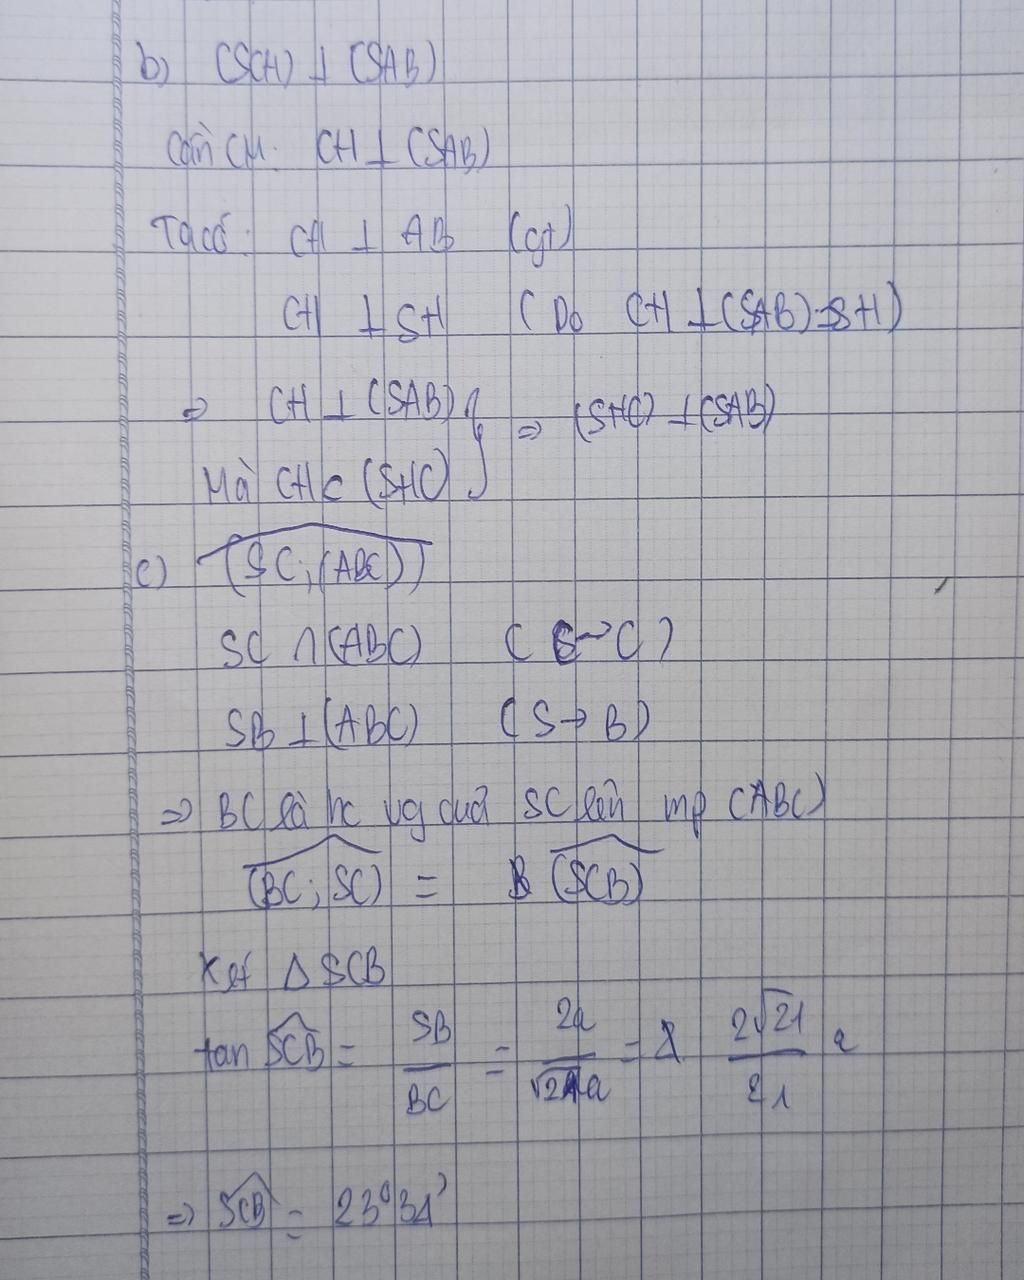 b) (SCH) ⊥ (SAB)
Cần CM. CH ⊥ (SAB)
Ta có: CH ⊥ AB (gt)
CH ⊥ SH (Do CH ⊥ (SAB) ⊃ SH)
⇒ CH ⊥ (SAB) } ⇒ (SHC) ⊥ (SAB)
Mà CH ⊂ (SHC)
c) (SC; (ABC))
SC ∩ (ABC) (C → C)
SB ⊥ (ABC) (S → B)
⇒ BC là hc vg của SC lên mp (ABC)
(BC; SC) = (SCB)
Xét Δ SCB
tan SCB = SB/BC = 2a/√21a = 2√21/21 a
⇒ SCB = 23°34'